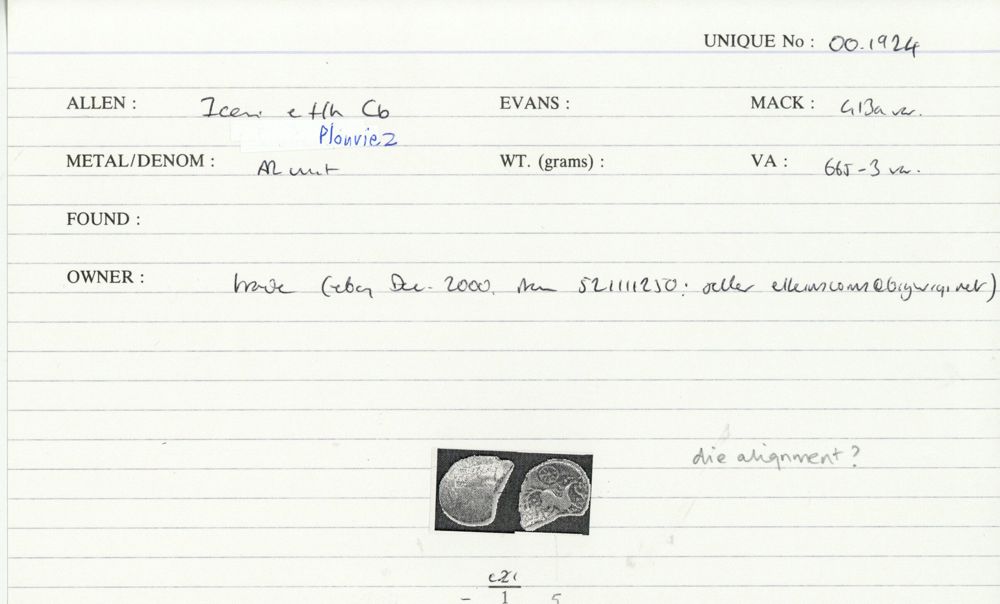 UNIQUE No : 00.1924
ALLEN : Iceni Cb EVANS : MACK : 413a var.
Plouviez
METAL/DENOM : AR unit WT. (grams) : VA : 665-3 var.
FOUND :
OWNER : trade (ebay Dec. 2000, item 521111250: seller
die alignment?
1 5